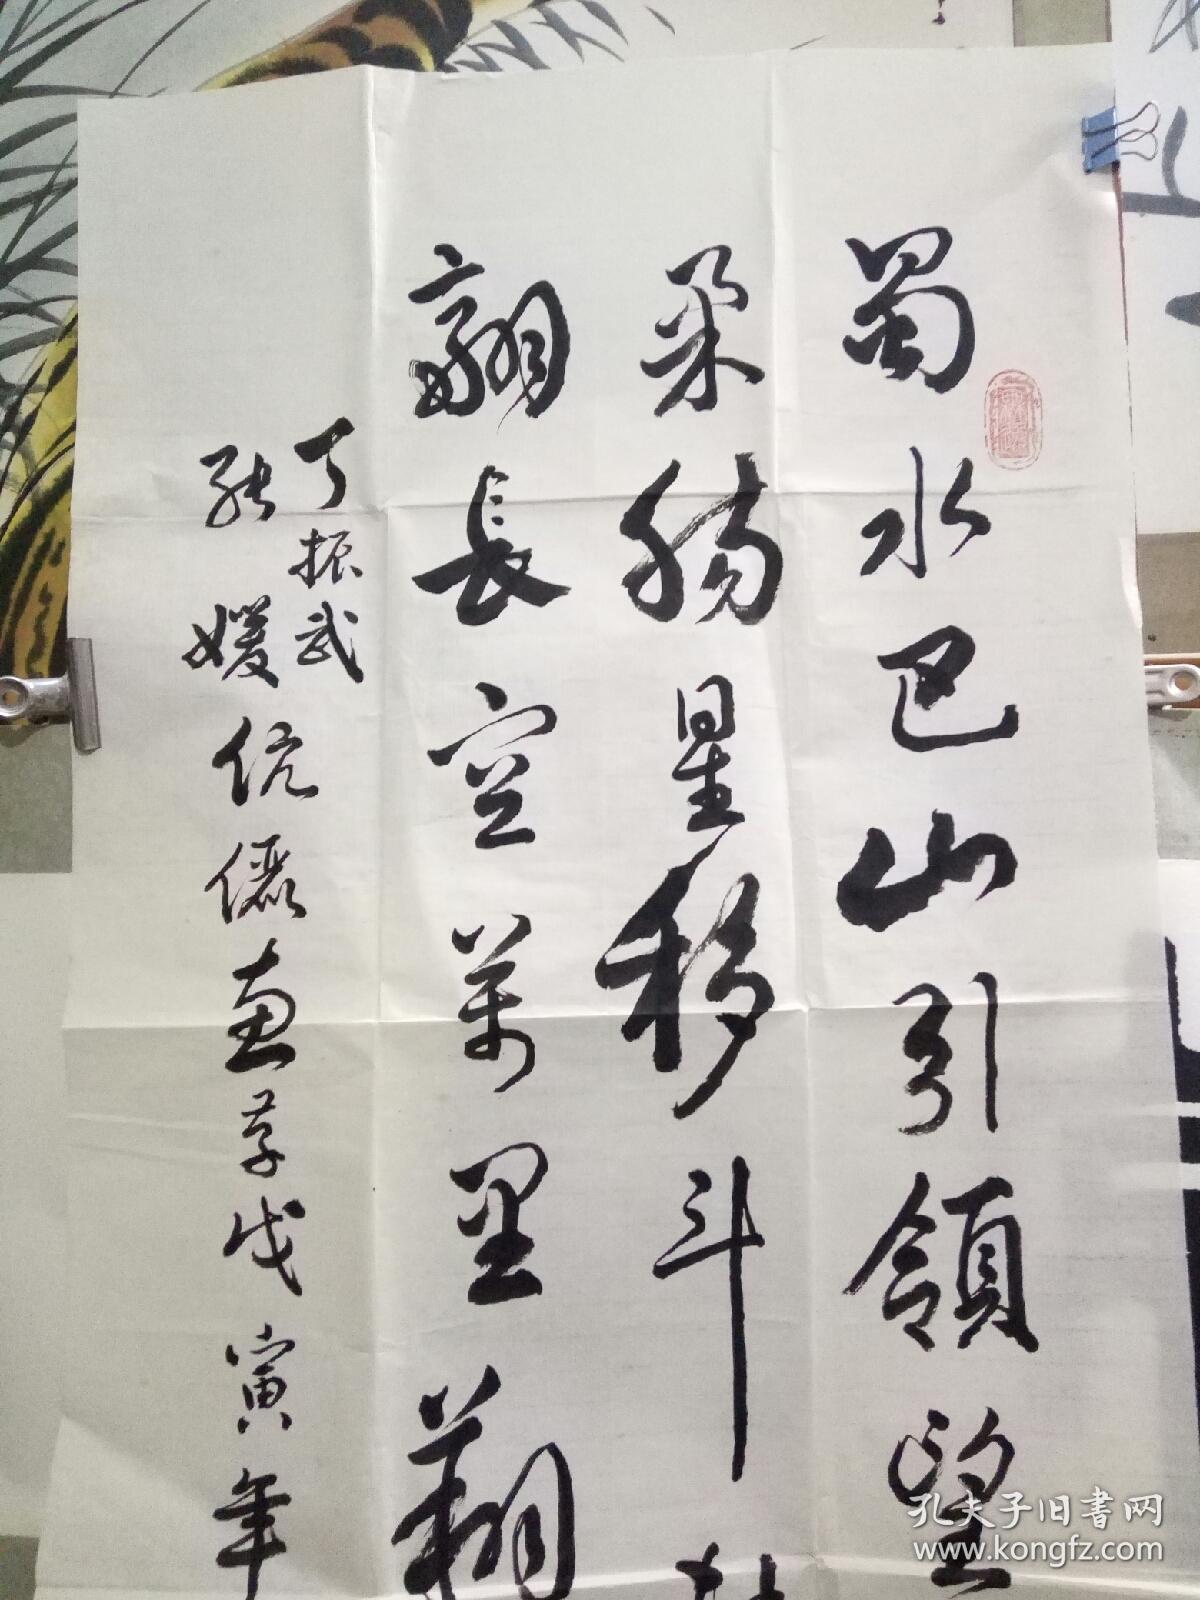 蜀水巴山引領望
柔腸星移斗
長空萬里翔
丁振武
張媛伉儷惠存戊寅年
孔夫子旧书网
www.kongfz.com